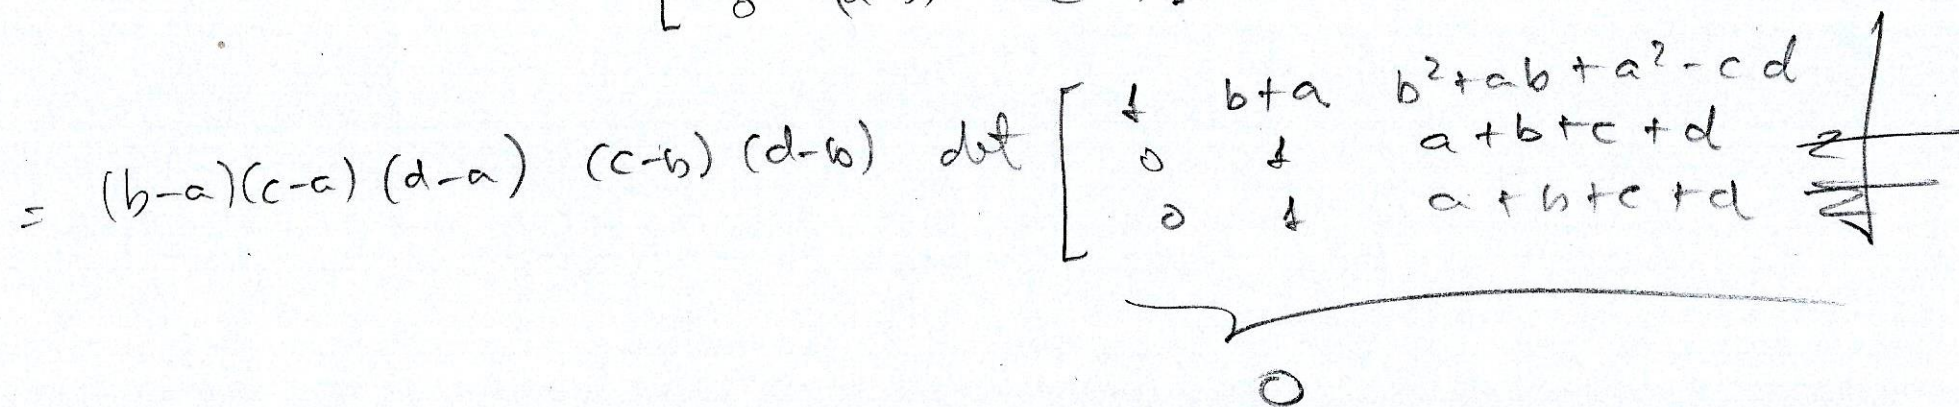 = (b-a)(c-a) (d-a) (c-b) (d-b) det [ 1 b+a b²+ab+a²-cd
0 1 a+b+c+d
0 1 a+b+c+d ]
0